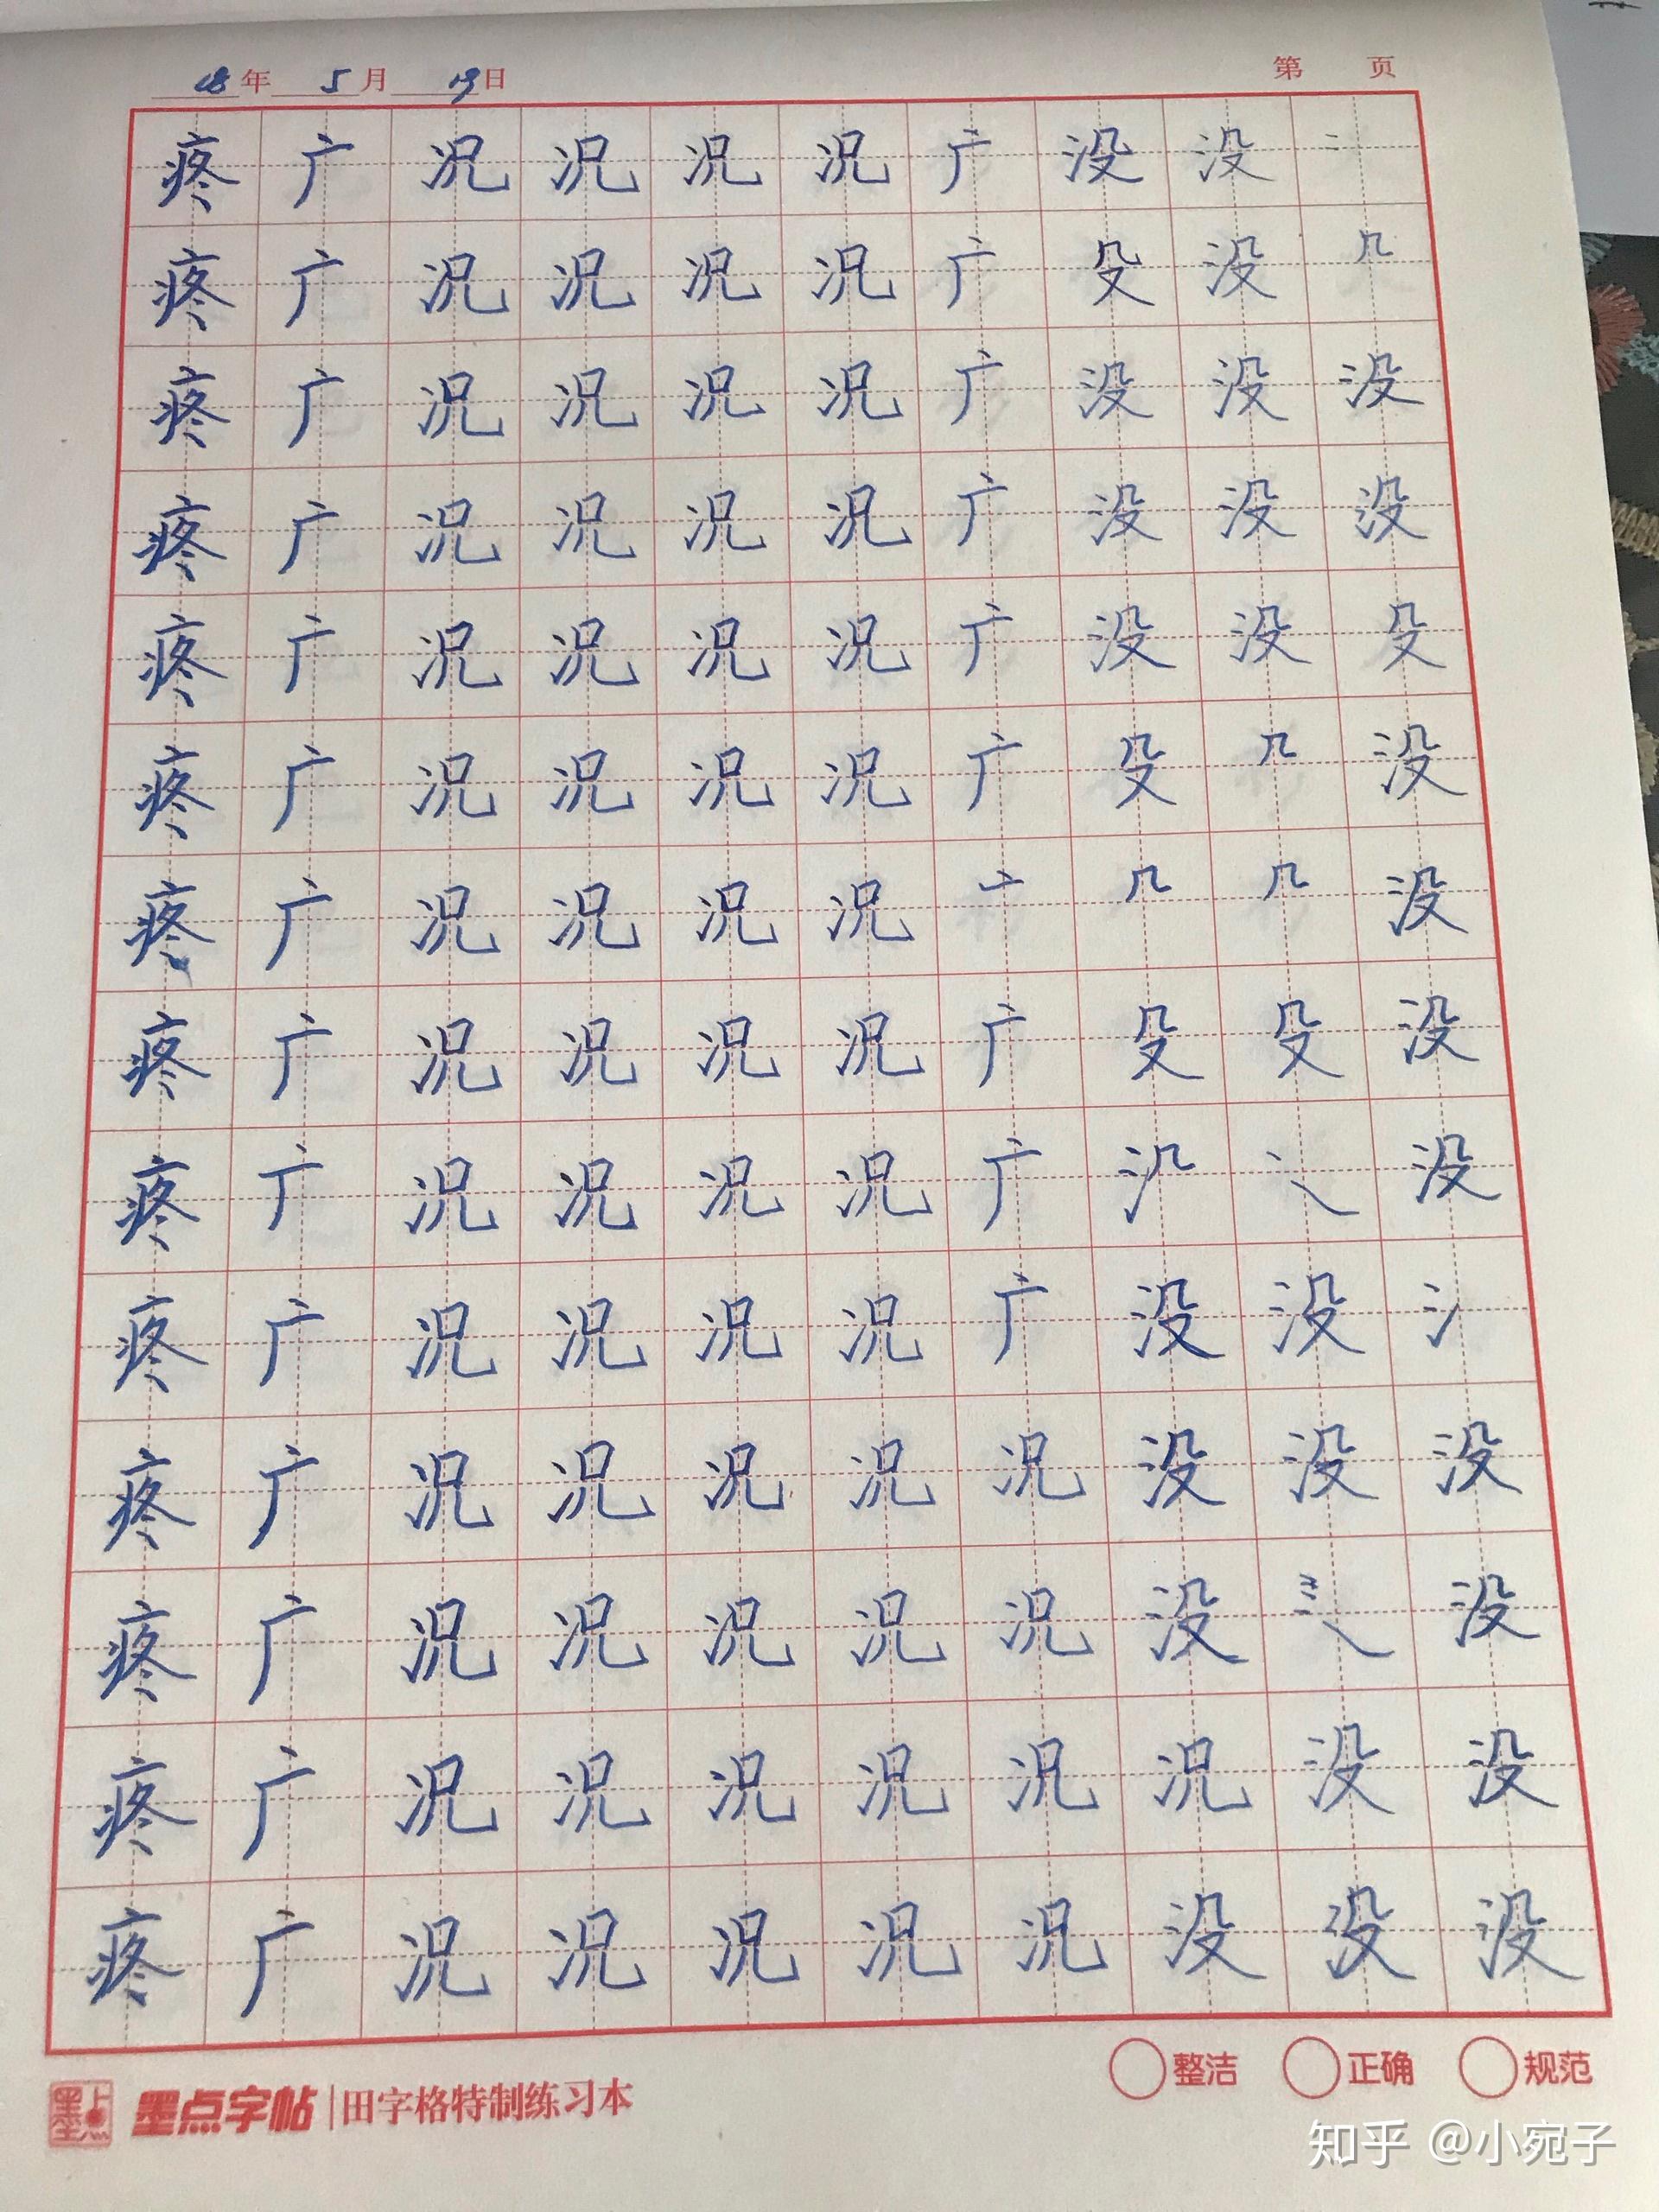 18年5月19日 第 页
疼广况况况况广没没
疼广况况况况广殳没几
疼广况况况况广没没没
疼广况况况况广没没没
疼广况况况况广没没殳
疼广况况况况广殳几没
疼广况况况况亠几几没
疼广况况况况广殳殳没
疼广况况况况广氵几没
疼广况况况况广没没氵
疼广况况况况况没没没
疼广况况况况况没没
疼广况况况况况况没没
疼广况况况况况没没没
整洁 正确 规范
墨点字帖|田字格特制练习本
知乎 @小宛子